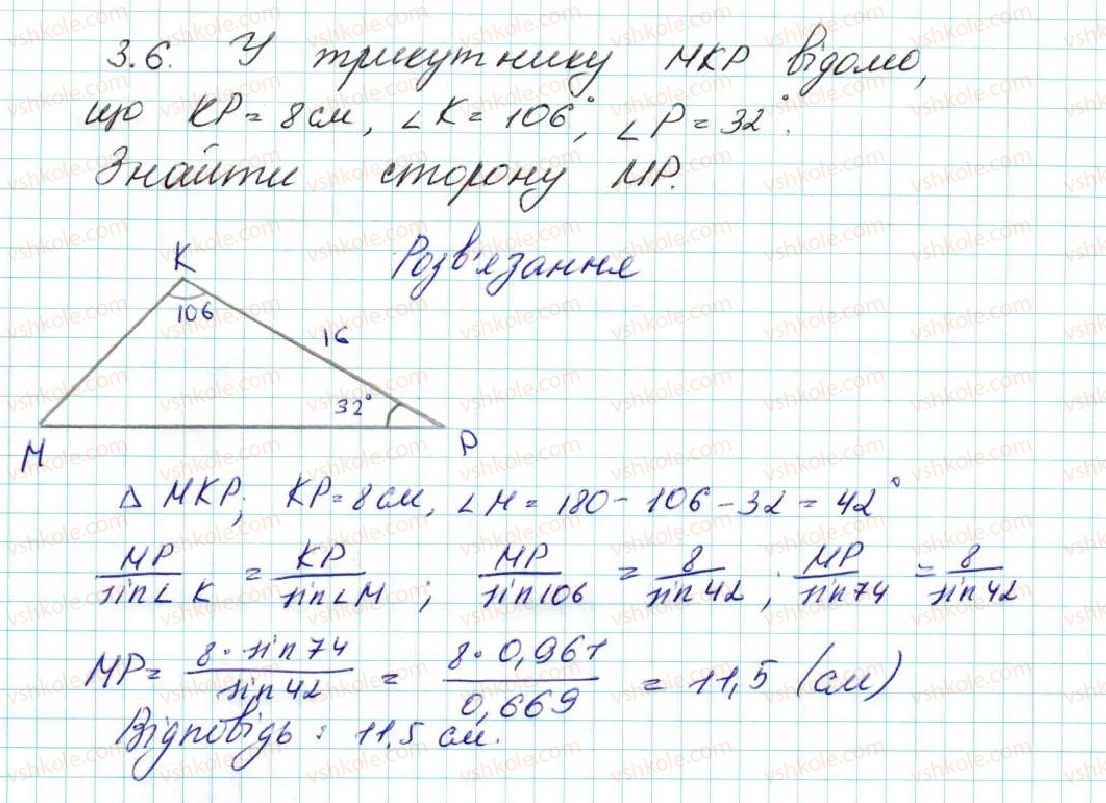 3.6. У трикутнику МКР відомо,
що КР = 8 см, ∠К = 106°, ∠Р = 32°.
Знайти сторону МР.
Розв'язання
К
106
16
32°
М
Р
Δ МКР; КР = 8 см, ∠М = 180 - 106 - 32 = 42°
МР/sin∠К = КР/sin∠М ; МР/sin 106 = 8/sin 42 ; МР/sin 74 = 8/sin 42
МР = 8 · sin 74/sin 42 = 8 · 0,961/0,669 = 11,5 (см)
Відповідь : 11,5 см.
vshkole.com